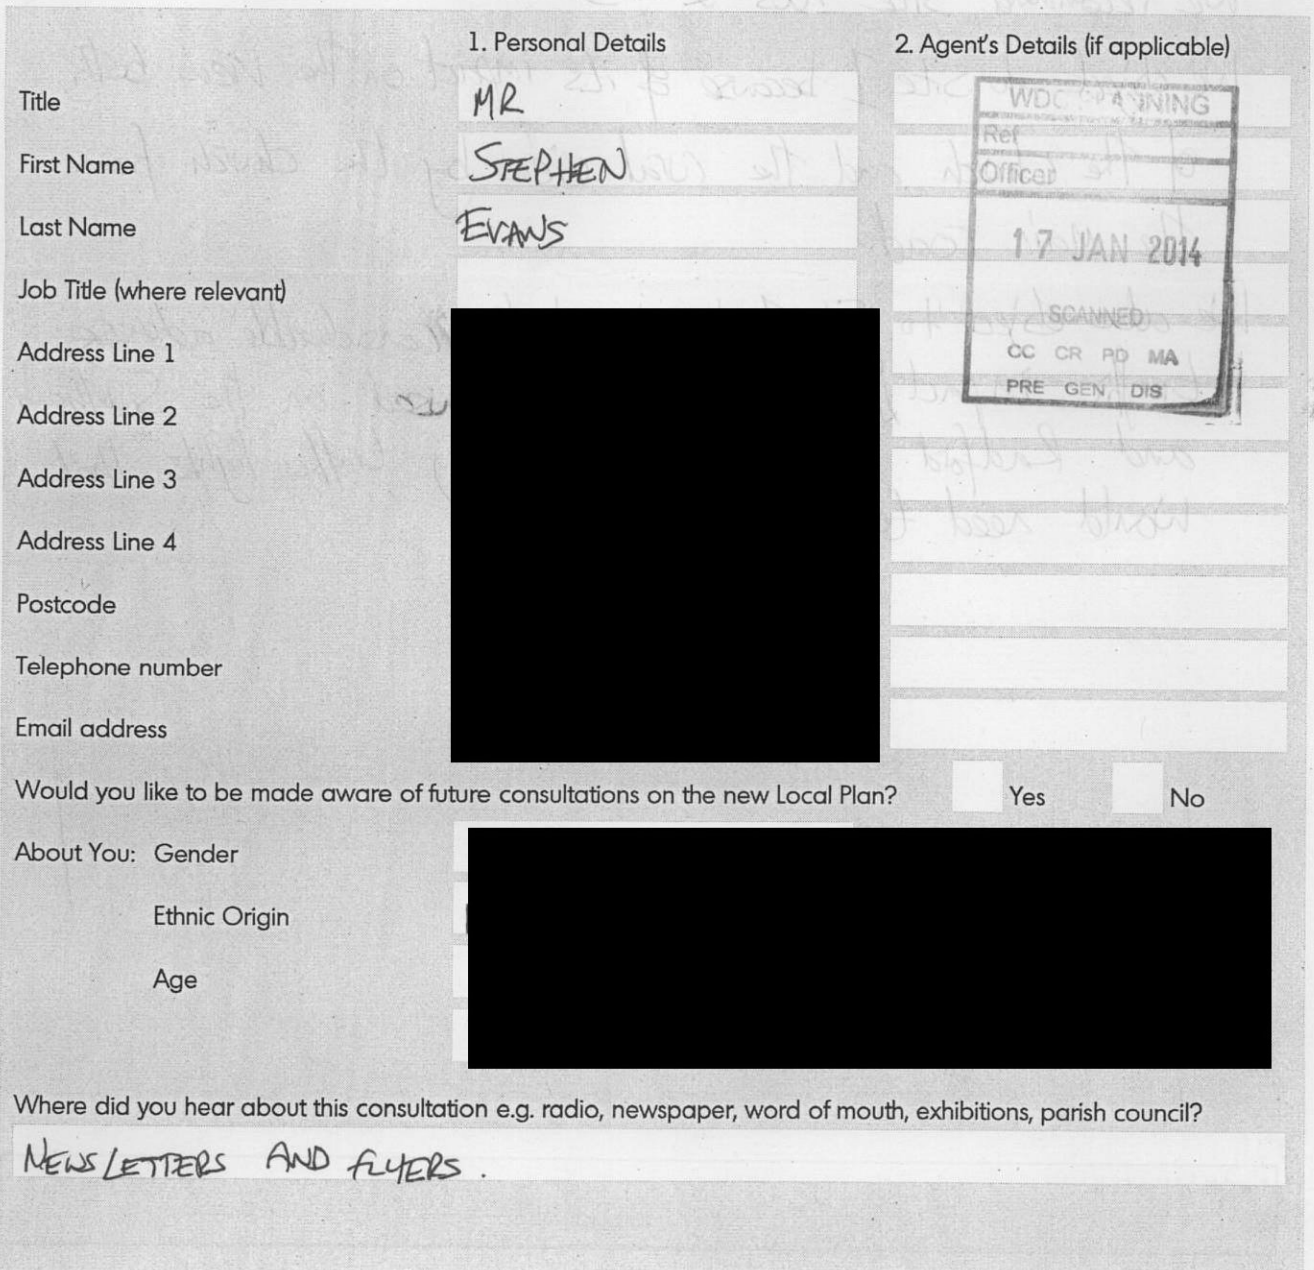 1. Personal Details 2. Agent's Details (if applicable)
Title MR
First Name STEPHEN
Last Name EVANS
Job Title (where relevant)
Address Line 1
Address Line 2
Address Line 3
Address Line 4
Postcode
Telephone number
Email address
WDC PLANNING
Ref
Officer
17 JAN 2014
SCANNED
CC CR PD MA
PRE GEN DIS
Would you like to be made aware of future consultations on the new Local Plan? Yes No
About You: Gender
Ethnic Origin
Age
Where did you hear about this consultation e.g. radio, newspaper, word of mouth, exhibitions, parish council?
NEWSLETTERS AND FLYERS.